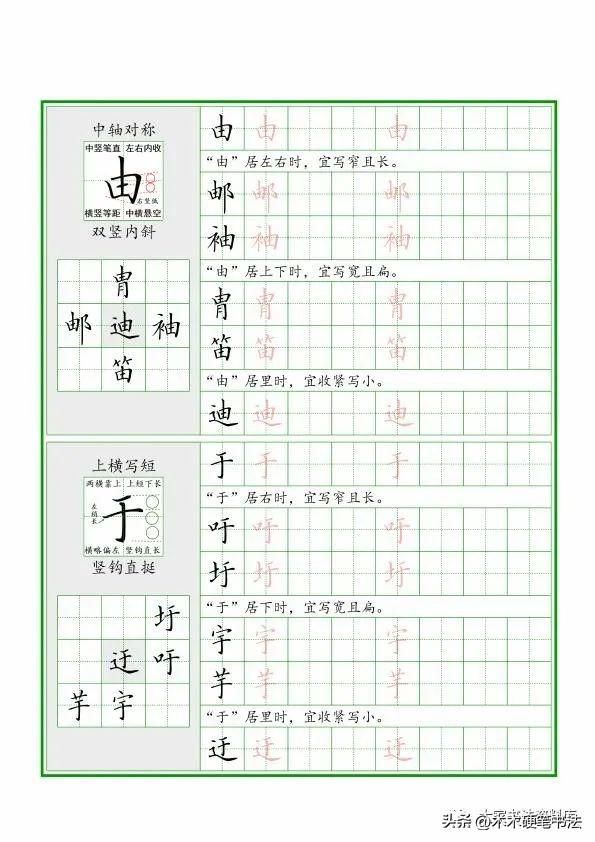 中轴对称
中竖笔直 左右内收
由
右竖低
横竖等距 中横悬空
双竖内斜
胄
邮 迪 袖
笛
由 由 由
“由”居左右时，宜写窄且长。
邮 邮 邮
袖 袖 袖
“由”居上下时，宜写宽且扁。
胄 胄 胄
笛 笛 笛
“由”居里时，宜收紧写小。
迪 迪 迪
上横写短
两横靠上 上短下长
左稍长
于
横略偏左 竖钩直长
竖钩直挺
圩
迂 吁
芋 宇
于 于 于
“于”居右时，宜写窄且长。
吁 吁 吁
圩 圩 圩
“于”居下时，宜写宽且扁。
宇 宇 宇
芋 芋 芋
“于”居里时，宜收紧写小。
迂 迂 迂
头条 @木木硬笔书法